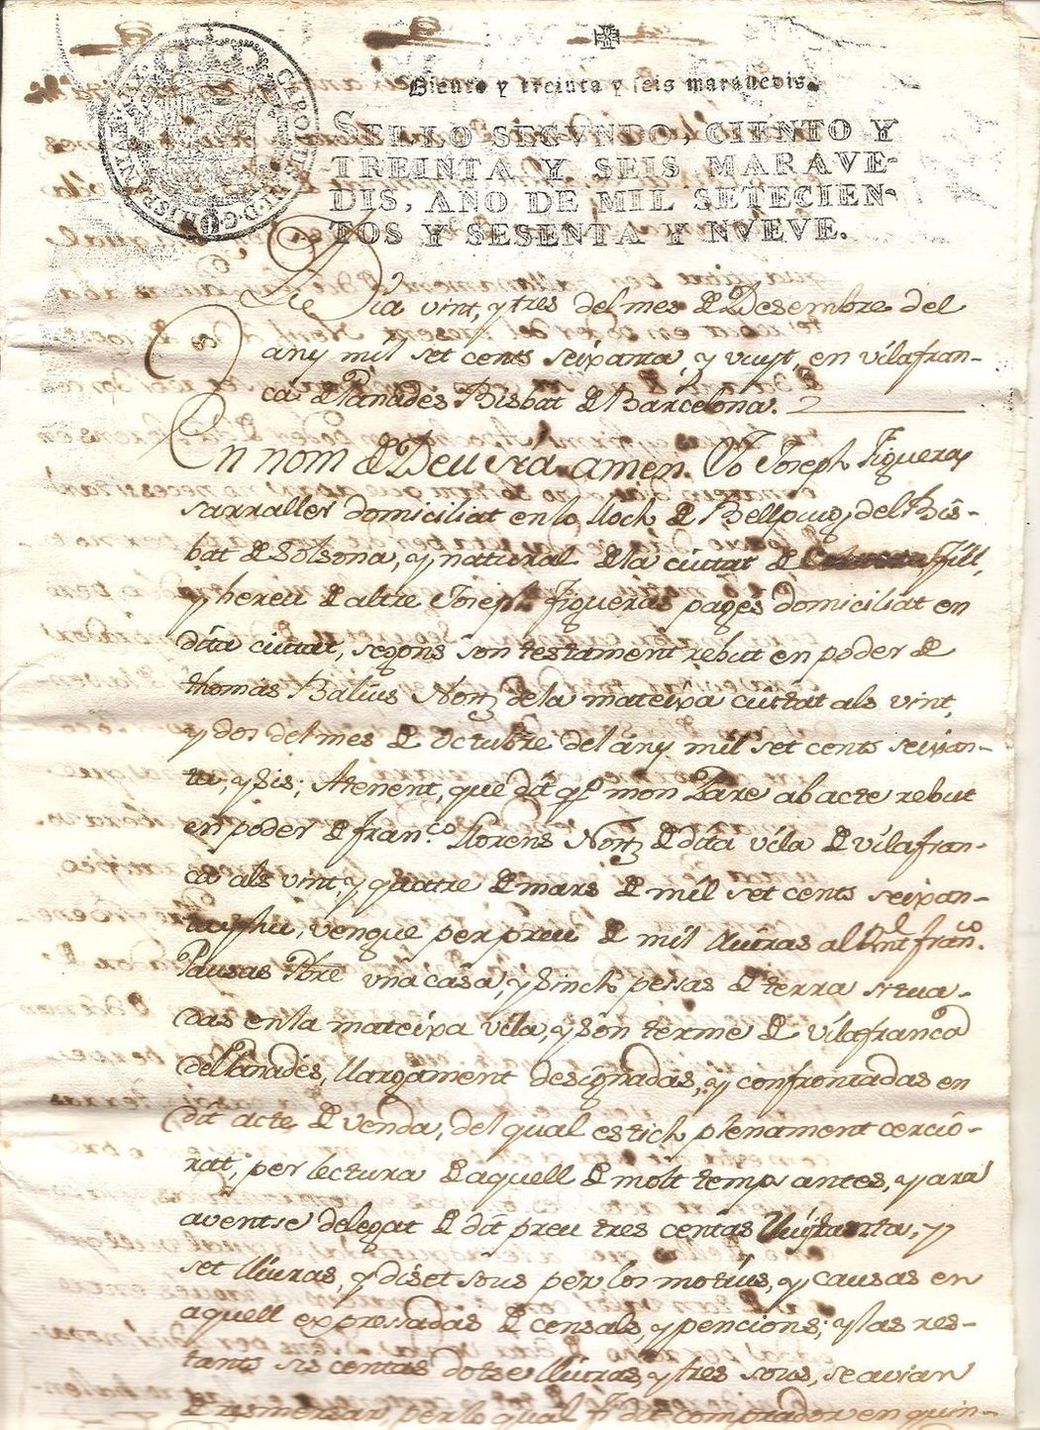 Ciento y treinta y seis maravedis.
SELLO SEGVNDO, CIENTO Y
TREINTA Y SEIS MARAVE-
DIS, AÑO DE MIL SETECIEN-
TOS Y SESENTA Y NVEVE.
Die Dia vint, y tres del mes de Desembre del
any mil set cents seixanta, y vuyt, en vilafran-
ca de Panadés Bisbat de Barcelona.
En nom de Deu sia amen. Yo Joseph Figueras
sarraller domiciliat en lo lloch de Bellpuig del Bis-
bat de Solsona, y natural de la ciutat de fill,
y hereu de altre Joseph Figueras pagés domiciliat en
dita ciutat, segons son testament rebut en poder de
thomas Balius Nori de la mateixa ciutat als vint,
y dos del mes de octubre del any mil set cents seixan-
ta, y sis; Atenent, que dit qº mon Pare ab acte rebut
en poder de fran.co llorens Nori de dita vila de vilafran-
ca als vint, y quatre de mars de mil set cents seixan-
ta, y hu, venque per preu de mil lliuras al franco.
Pausas Pbre una casa, y sinch pessas de terra situa-
das en la mateixa vila, y son terme de vilafranca
del Panadés, llargament designadas, y confrontadas en
dit acte de venda, del qual estich plenament cercio-
rat, per lectura de aquell de molt temps antes, y ara
aventse delegat de dit preu tres centas vuytanta, y
set lliuras, y diset sous per los motius, y causas en
aquell expressadas de censals, y pencions; y las res-
tants sis centas dotse lliuras, y tres sous, se avian
de esmersar, per lo qual fi dit comprador en quin-